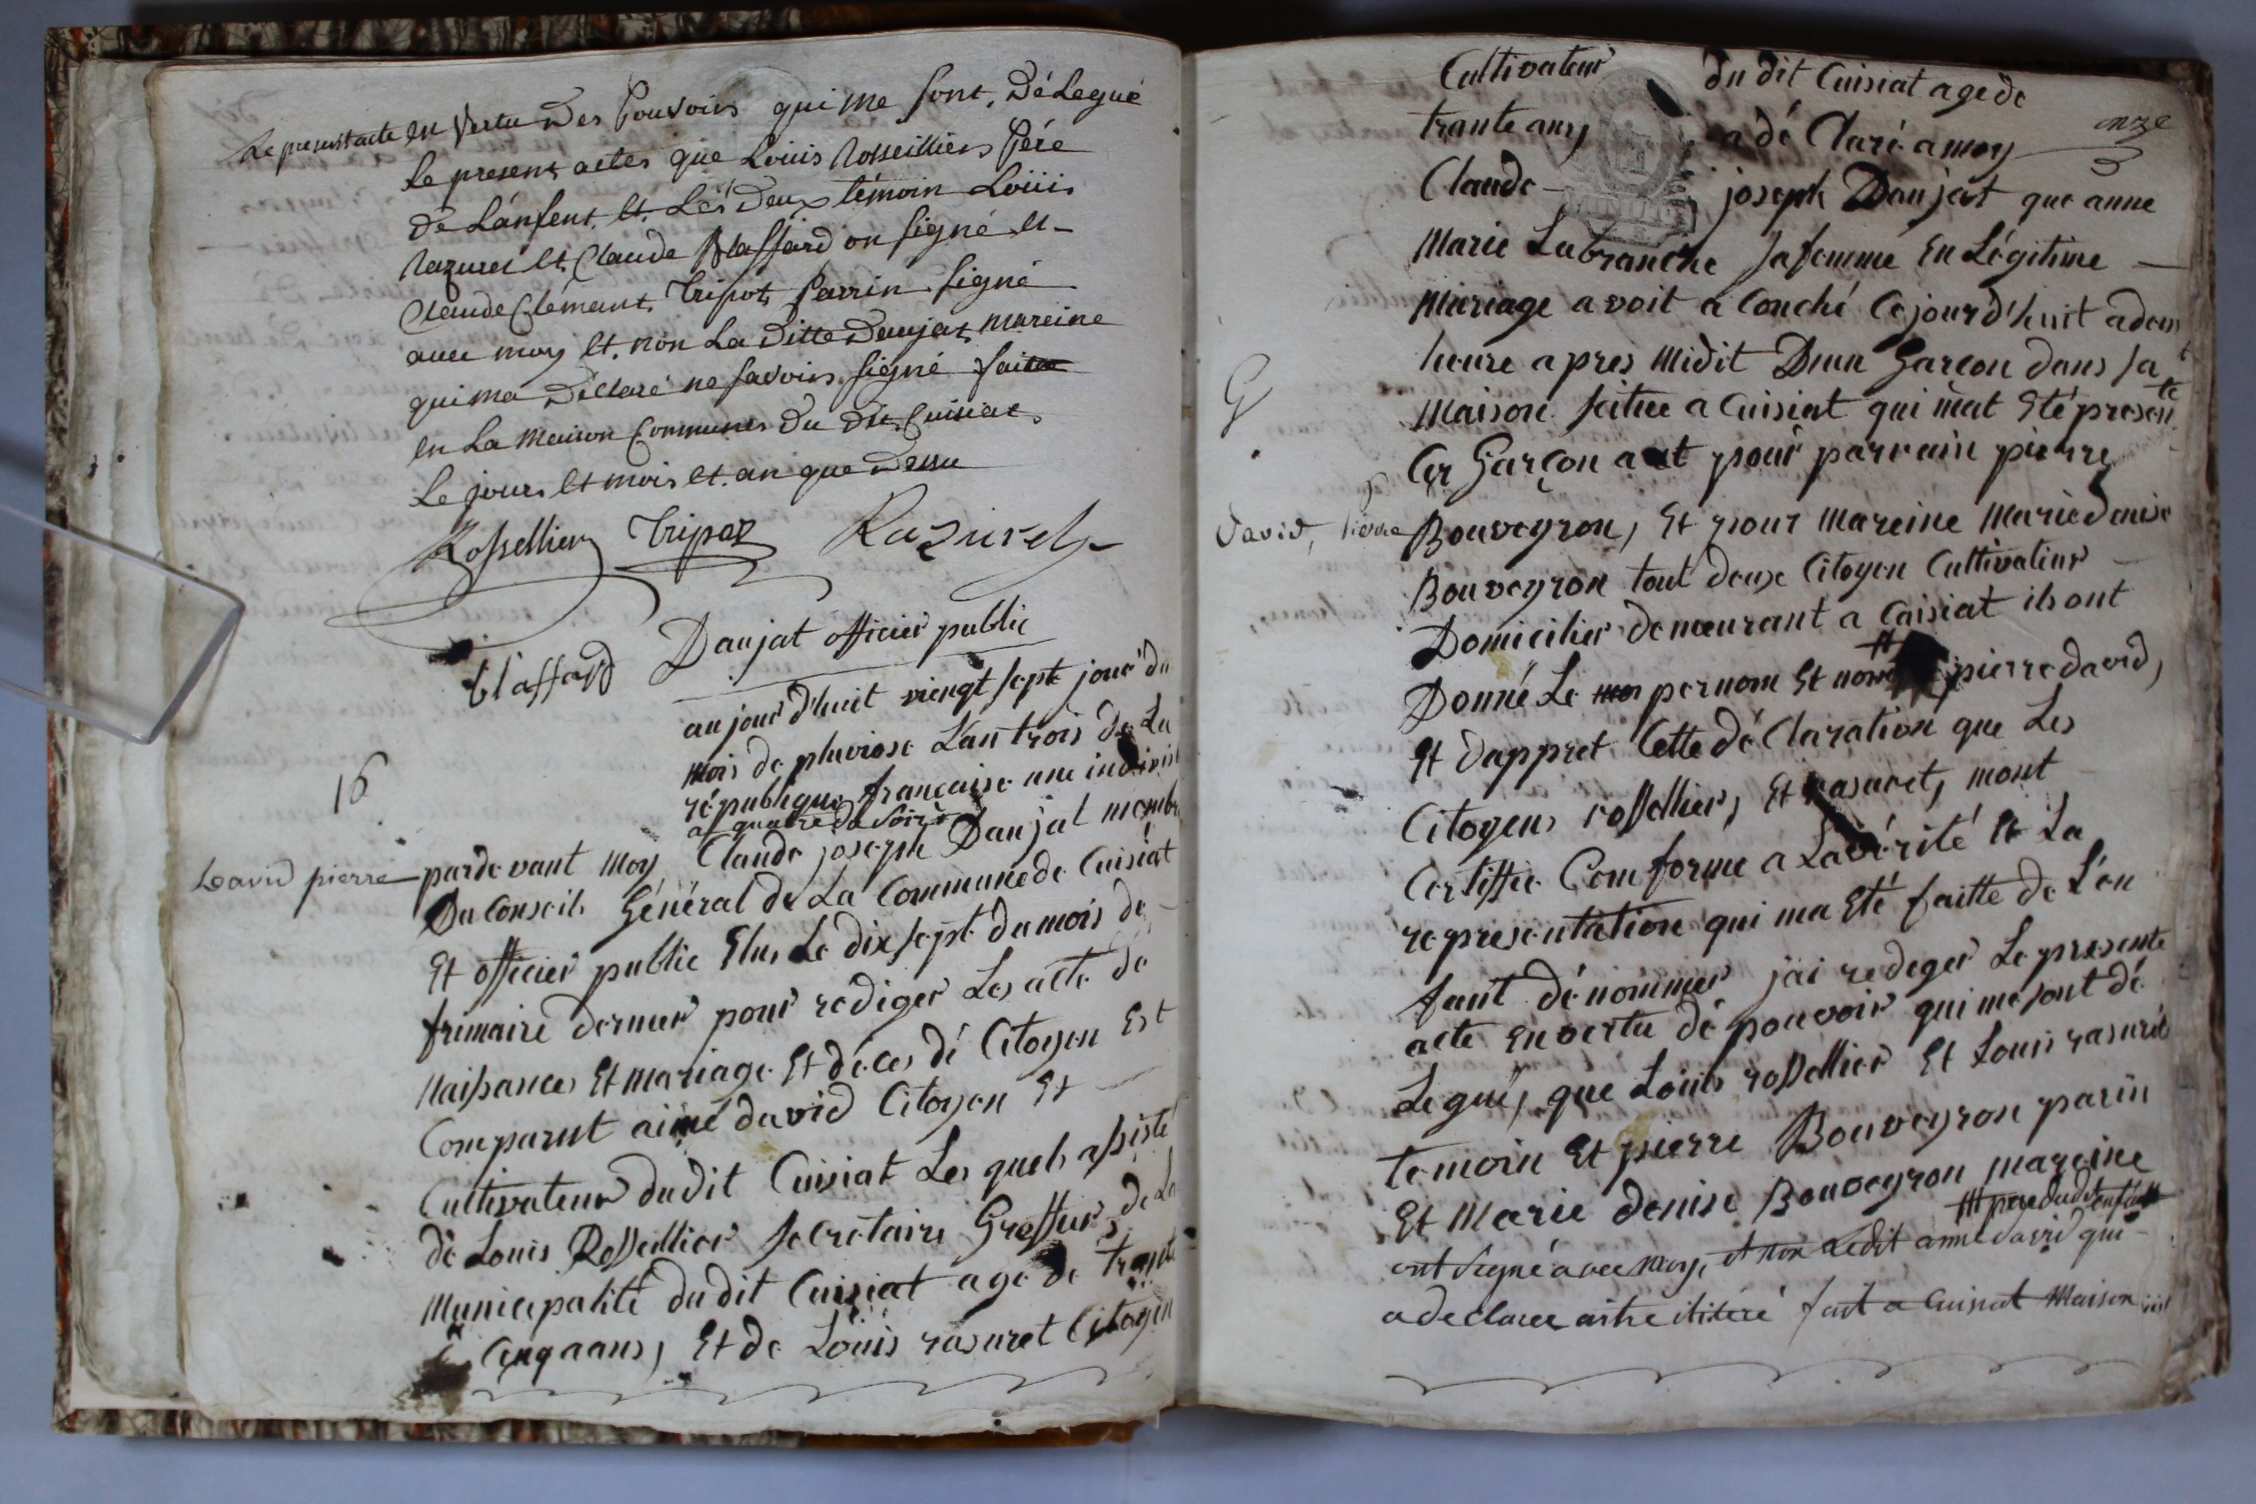 Le present acte en vertu Des Pouvoirs qui me sont, Délegué
Le present actes que Louis Rosseilliers Pére
De L'anfent, et Les Deux témoin Loüis
Razuret et Claude Blaffard on signé et
Claude Clémant Tripoz Parrin signé
avec moy et. non La Ditte Daujat, mareine
qui ma Déclaré ne savoirs signé
en La Maison Communes du Dit Cuisiat
Le jours et mois et. an que Dessu
Rossellier Tripoz Razuret
Blaffard Daujat officier public
16
aujourd'huit viengt sept jour du
mois de pluviose L'an trois de La
république française une indivisi
a quatre du soire
David pierre
pardevant moy Claude joseph Daujat membr
Du Conseil Général de La Commune de Cuisiat
Et officier public Elus Le dix sept du mois de
frimaire dernier pour rediger Les acte de
Naissances Et mariage Et déces dé Citoyen Est
Comparut aimé david Citoyen Et
Cultivateur dudit Cuisiat Les quels assisté
de Louis Rossellier secretaire Greffier de La
Municipalité du dit Cuisiat age de trante
Cinq aans, Et de Loüis rasuret Citoyen
Cultivateur du dit Cuisiat age de
onze
trante ans a dé Claré a moy
Claude joseph Daujat que anne
Marie Labranche sa femme En Légitime
Mariage avoit a Couché Cejourd'huit a dem
heure apres Midit D'un Garcon dans sa
G
Maison scituée a Cuisiat qui m'at Eté presenté
Ce Garçon a eut pour parrain pierre
David, Pierre
Bouveyron, Et pour Mareine Marie denise
Bouveyron tout deux Citoyen Cultivateur
Domicilier demeurant a Cuisiat ils ont
Donné Le pernom Et nom pierre david,
Et dappret Cette dé Claration que Les
Citoyens rossellier, Et rasuret, mont
Certiffie Comforme a La vérité Et La
representation qui ma Eté faitte de L'en
fant dé nommer jai redeger Le presente
acte En vertu dé pouvoir qui me sont dé
Legué, que Louis rossellier Et Louis rasuret
temoin Et pierre Bouveyron parin
Et Marie denise Bouveyron mareine
pere dudit enfant
ont signé avec moy, et non Ledit aimé david qui
a declarer aitre ilitéré fait a Cuisiat Maison